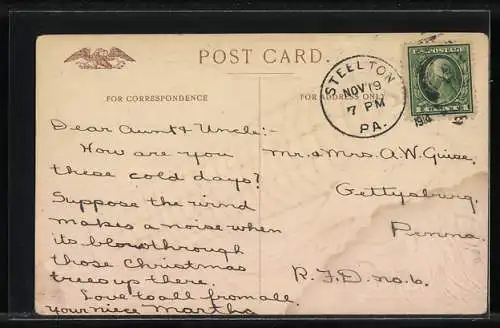 POST CARD.
FOR CORRESPONDENCE
FOR ADDRESS ONLY
STEELTON
NOV 19
7 PM
PA.
1914
Dear Aunt & Uncle:-
How are you
these cold days?
Suppose the wind
makes a noise when
its blow through
those Christmas
trees up there.
Love to all from all.
your niece Martha
Mr. & Mrs. A.W. Guise,
Gettysburg,
Penna.
R.F.D. no. 6.